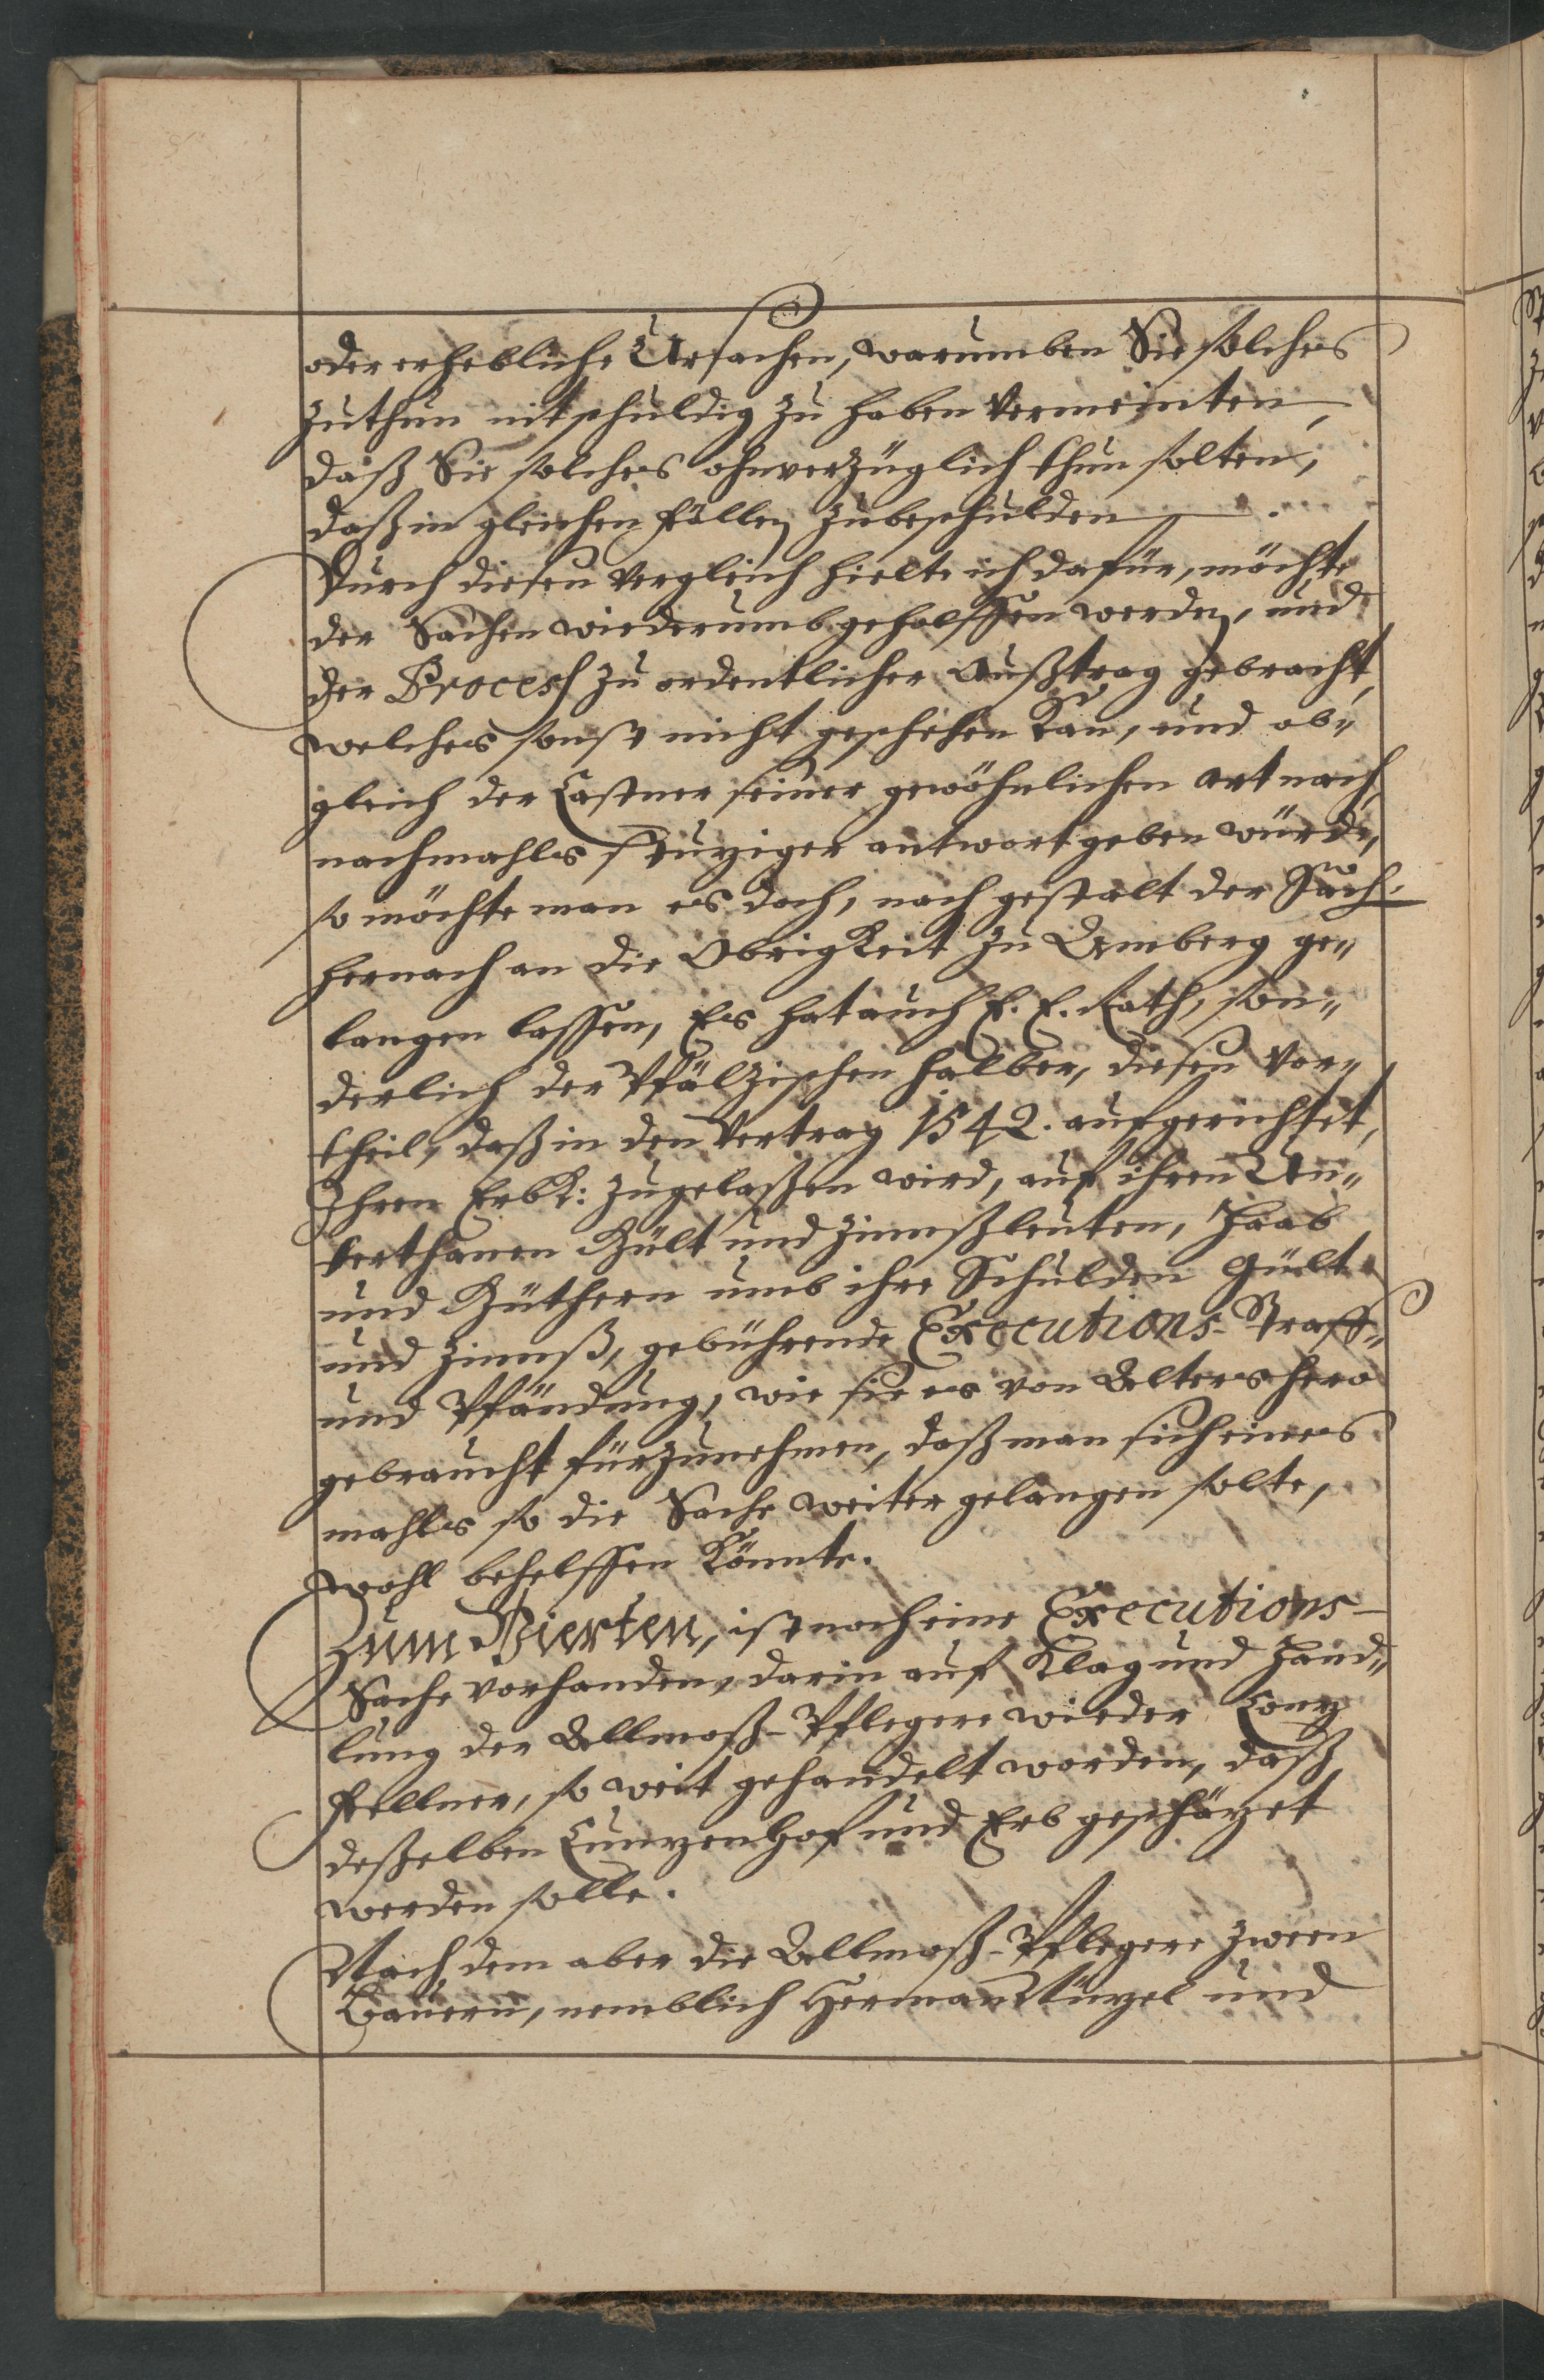 oder erhebliche Ursachen, warumben Sie solches
zuthun nit schuldig zu haben vermeinten,
daß Sie solches ohnverzüglich thun solten,
daß in gleichen fällen zubeschulden.
Durch diesen Vergleich hielte ich dafür, möchte
der Sachen wiederumb geholffen werden, und
der Process zu ordentlicher Außtrag gebracht,
welches sonst nicht geschehen kan, und ob„
gleich der Castner seiner gewöhnlichen art nach,
nachmahls stuziger antwort geben würde,
so möchte man es doch, nach gestalt der Sach
hernach an die Obrigkeit zu Amberg ge„
langen lassen, Es hat auch E. E. Rath, son„
derlich der Pfälzischen halber, diesen Vor„
theil, daß in den Vertrag 1542. aufgerichtet,
Ihren Erbk: zugelaßen wird, auf ihren Un„
terthanen Gült und Zinnßleuten, Haab
und Güthern umb ihre Schulden Gült
und Zinnß, gebührende Executions-Straff„
und Pfändung, wie sie es von Alters hero
gebraucht fürzunehmen, daß man sich eines
mahls so die Sache weiter gelangen solte,
wohl behelffen könnte.
Zum Vierten, ist noch eine Executions-
Sache vorhanden, darin auf Klag und Hand„
lung der Allmoß-Pflegere wieder Conz
Fellner, so weit gehandelt worden, daß
deßelben Cunzen Hof und Erb geschäzet
werden solle.
Nach dem aber die Allmoß-Pflegere zween
Bauern, nemblich Herman Kunzel und